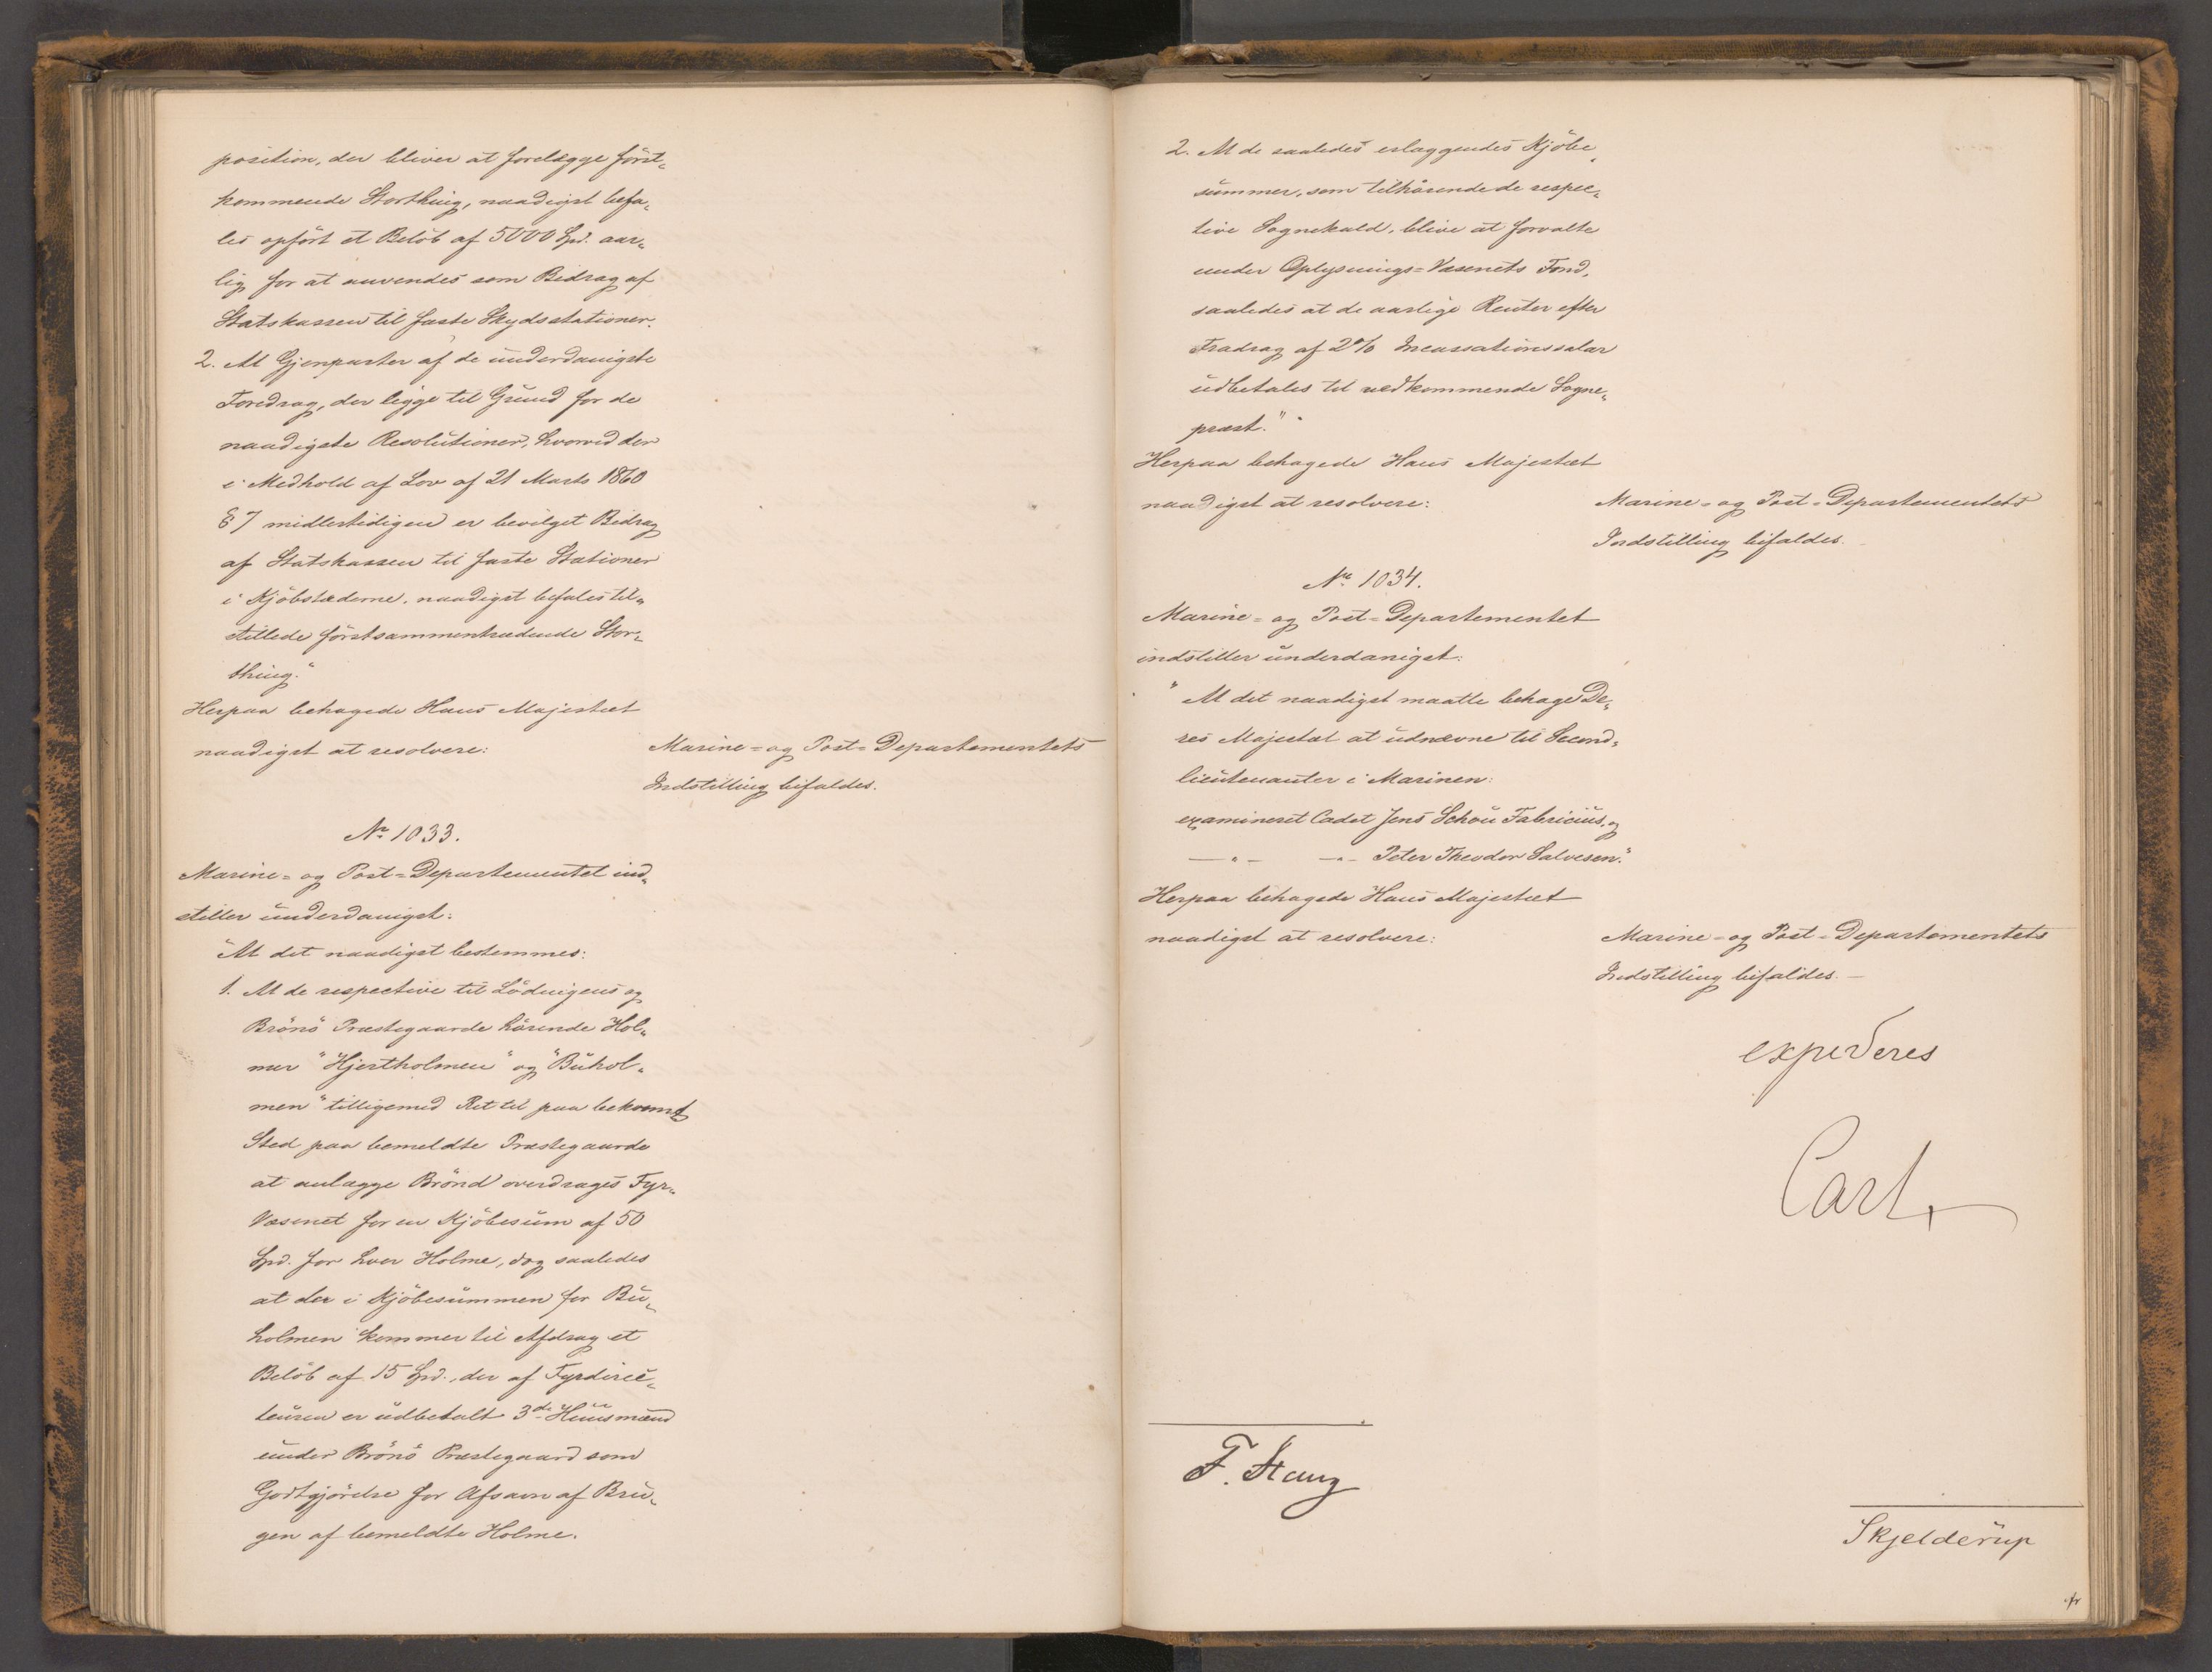 position, der bliver at forelægge först„
kommende Storthing, naadigst befa„
les opfört et Belöb af 5000 Spd. aar„
lig for at anvendes som Bidrag af
Statskassen til faste Skydsstationer.
2. At Gjenparter af de underdanigste
Foredrag, der ligge til Grund for de
naadigste Resolutioner, hvorved der
i Medhold af Lov af 21 Marts 1860
§ 7 midlertidigen er bevilget Bidrag
af Statskassen til faste Stationer
i Kjöbstæderne, naadigst befales til„
stillede förstsammentrædende Stor„
thing."
Herpaa behagede Hans Majestæt
naadigst at resolvere:
Marine- og Post-Departementets
Indstilling bifaldes.
No 1033.
Marine- og Post-Departementet ind„
stiller underdanigst:
"At det naadigst bestemmes:
1. At de respective til Lödingens og
Brönö Præstegaarde hörende Hol„
mer "Hjertholmen" og "Buhol„
men" tilligemed Ret til paa bekvemt
Sted paa bemeldte Præstegaarde
at anlægge Brönd overdrages Fyr„
Væsenet for en Kjöbesum af 50
Spd. for hver Holme, dog saaledes
at der i Kjöbesummen for Bu„
holmen kommer til Afdrag et
Belöb af 15 Spd., der af Fyrdirec„
teuren er udbetalt 3de Huusmænd
under Brönö Præstegaard som
Godtgjörelse for Afsavn af Bru„
gen af bemeldte Holme.
2. At de saaledes erlæggendes Kjöbe„
summer, som tilhörende de respec„
tive Sognekald, blive at forvalte
under Oplysnings-Væsenets Fond,
saaledes at de aarlige Renter efter
Fradrag af 2% Incassationssalar
udbetales til vedkommende Sogne„
præst."
Herpaa behagede Hans Majestæt
naadigst at resolvere:
Marine- og Post-Departementets
Indstilling bifaldes.
No 1034.
Marine- og Post-Departementet
indstiller underdanigst:
"At det naadigst maatte behage De„
res Majestæt at udnævne til Second„
lieutenanter i Marinen:
examineret Cadet Jens Schou Fabricius, og
— " — — " — Peter Theodor Salvesen."
Herpaa behagede Hans Majestæt
naadigst at resolvere:
Marine- og Post-Departementets
Indstilling bifaldes. —
expederes
Carl
F. Stang
Skjelderup